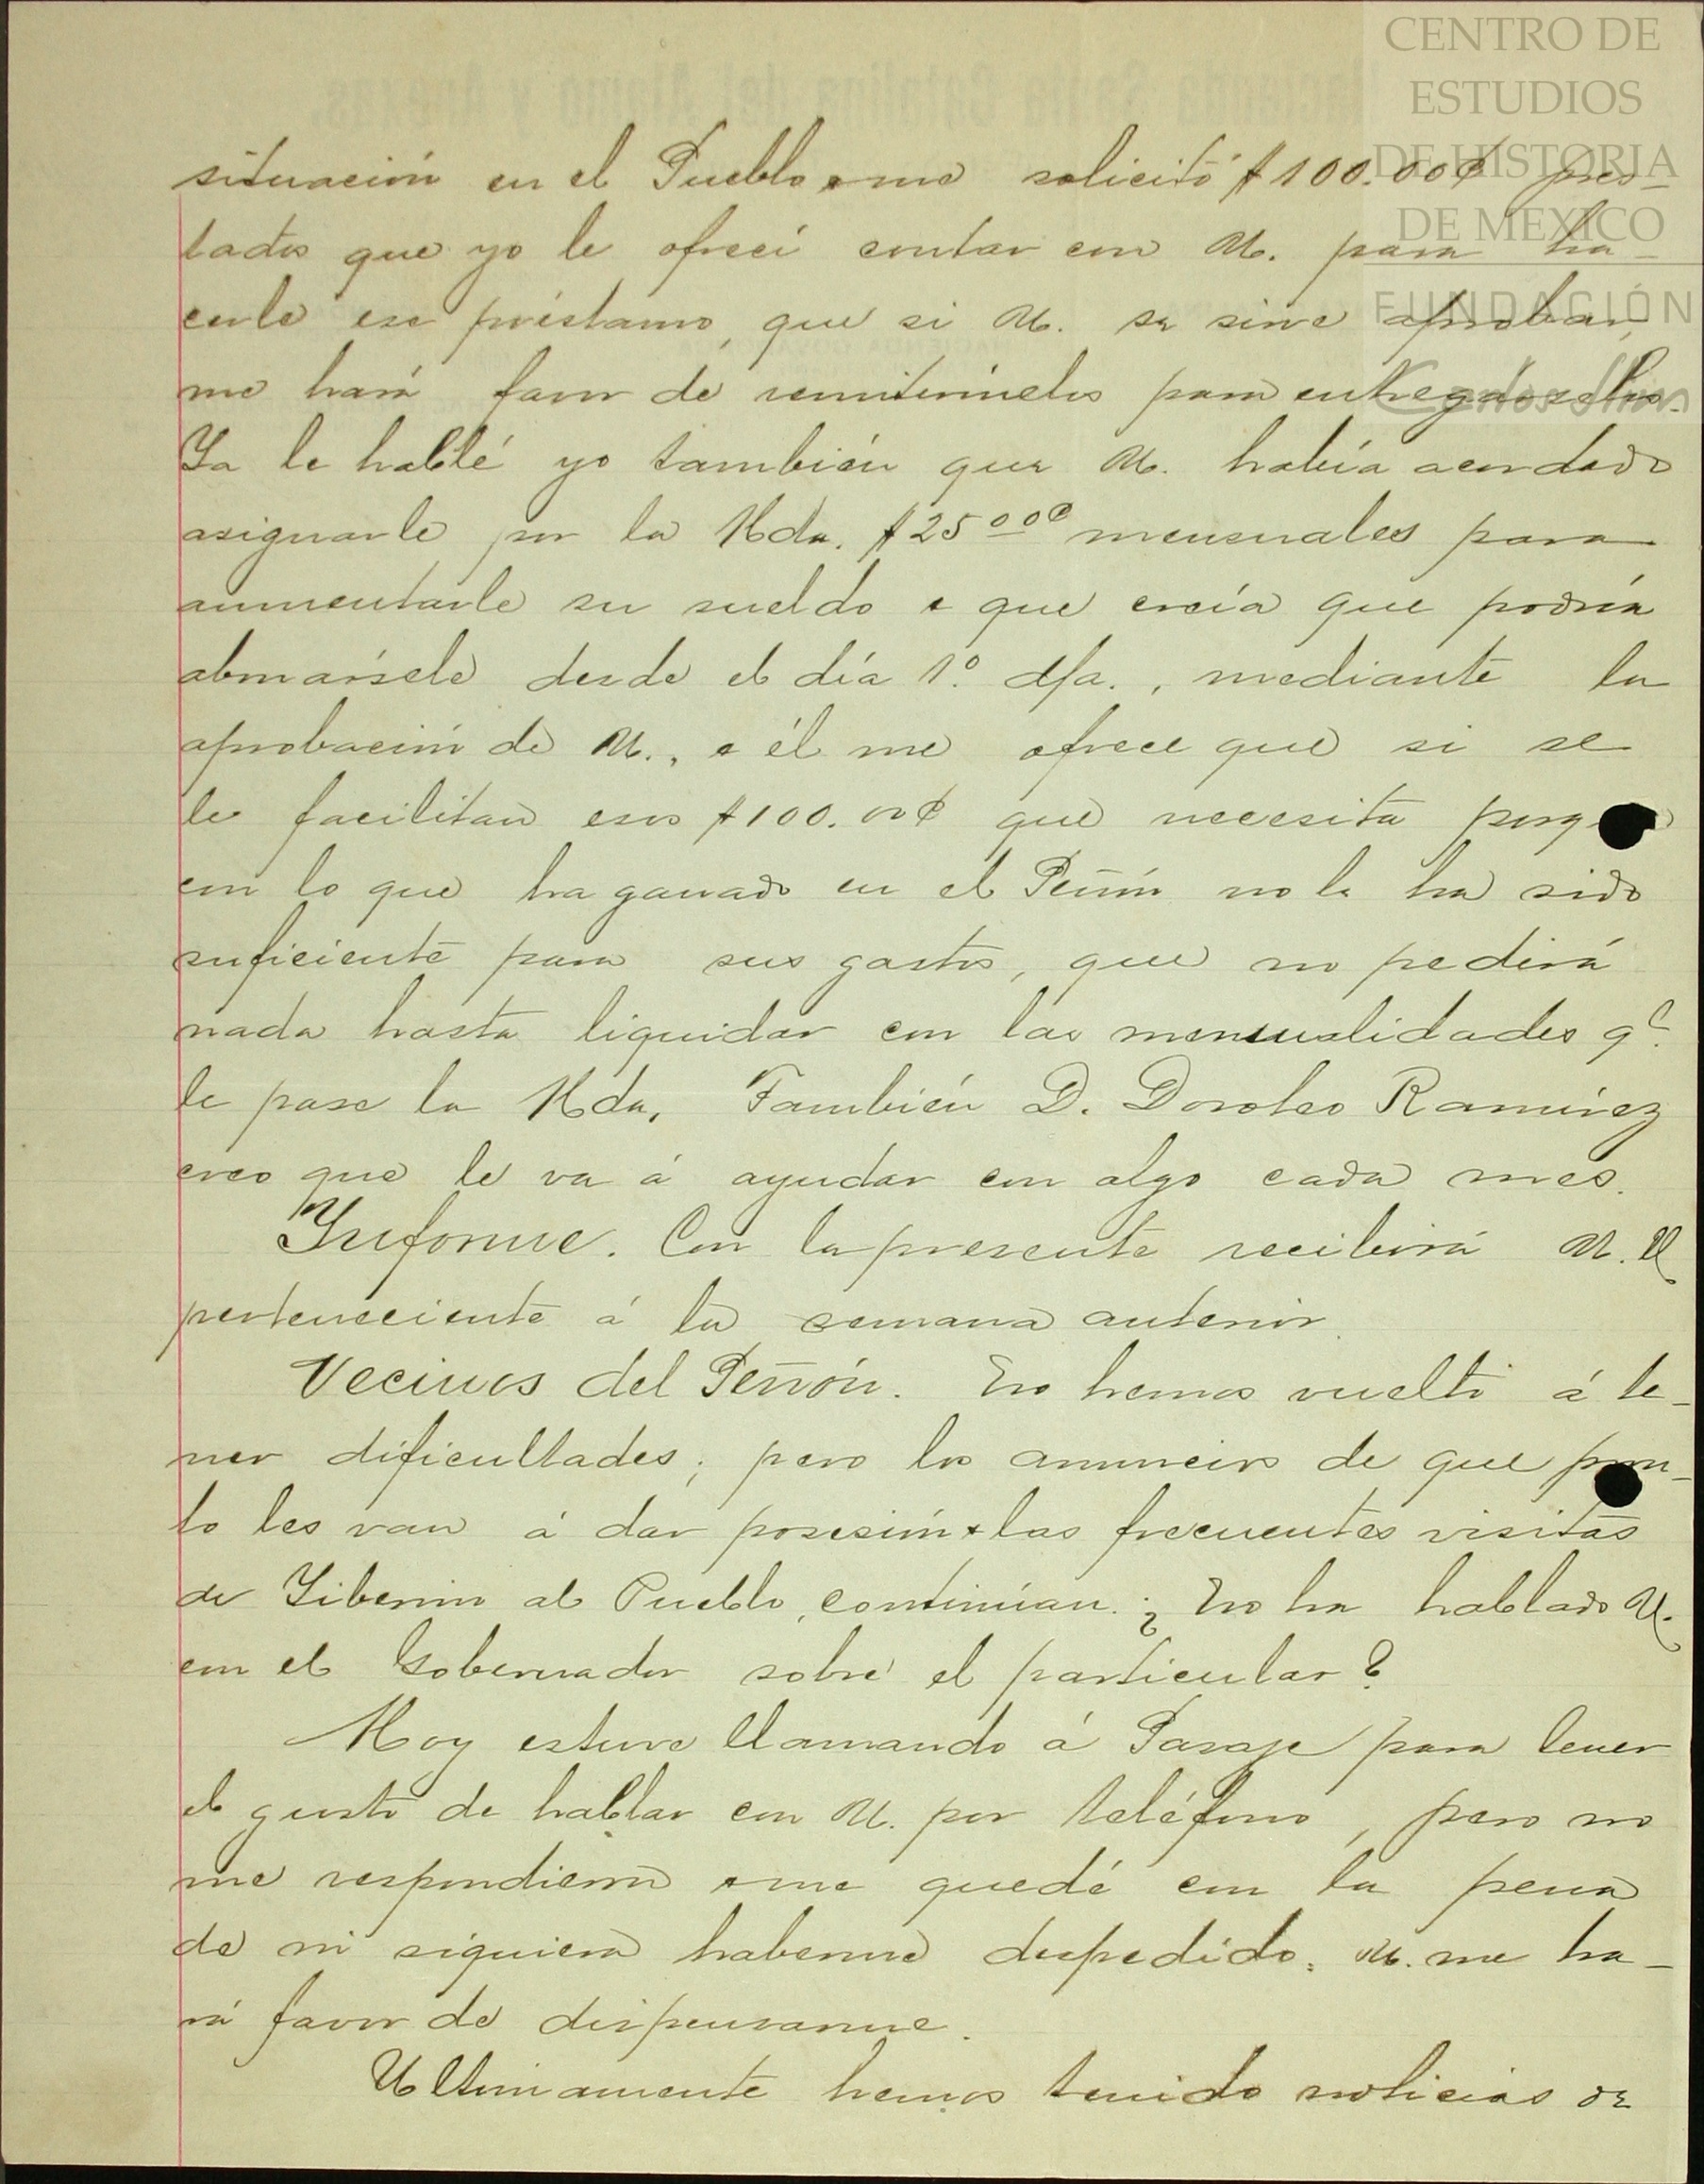 CENTRO DE
ESTUDIOS
DE HISTORIA
DE MEXICO
FUNDACIÓN
Carlos Slim
situación en el Pueblo e me solicitó $100.00¢ pres-
tados que yo le ofrecí contar con U. para ha-
cerle ese préstamo, que si U. se sirve aprobar,
me hará favor de remitírmelos para entregárselos.
Ya le hablé yo también que U. había acordado
asignarle por la Hda. $25.00¢ mensuales para
aumentarle su sueldo e que creía que podría
abonársele desde el día 1º. d/a., mediante la
aprobación de U., e él me ofrece que si se
le facilitan esos $100.00¢ que necesita porq
con lo que ha ganado en el Peñón no le ha sido
suficiente para sus gastos, que no pedirá
nada hasta liquidar con las mensualidades qe.
le pase la Hda. También D. Doroteo Ramírez
creo que le va á ayudar con algo cada mes.
Informe. Con la presente recibirá U. el
perteneciente á la semana anterior.
Vecinos del Peñón. No hemos vuelto á te-
ner dificultades; pero los anuncios de que pron-
to les van á dar posesión e las frecuentes visitas
de Liborio al Pueblo, continúan. ¿No ha hablado U.
con el Gobernador sobre el particular?
Hoy estuve llamando á Pasaje para tener
el gusto de hablar con U. por teléfono, pero no
me respondieron e me quedé con la pena
de ni siquiera haberme despedido. U. me ha-
rá favor de dispensarme.
Ultimamente hemos tenido noticias de